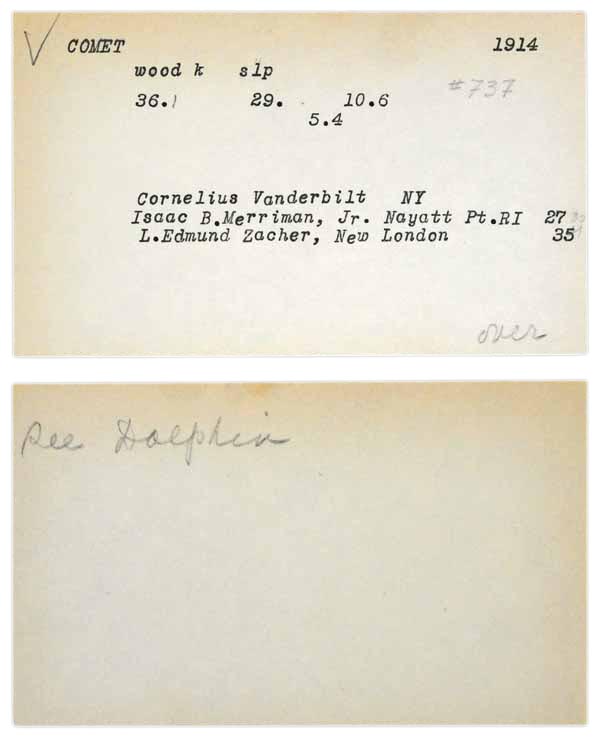 √ COMET 1914
wood k slp
#737
36.1 29. 10.6
5.4
Cornelius Vanderbilt NY
Isaac B.Merriman, Jr. Nayatt Pt.RI 27
L.Edmund Zacher, New London 35
over
See Dolphin